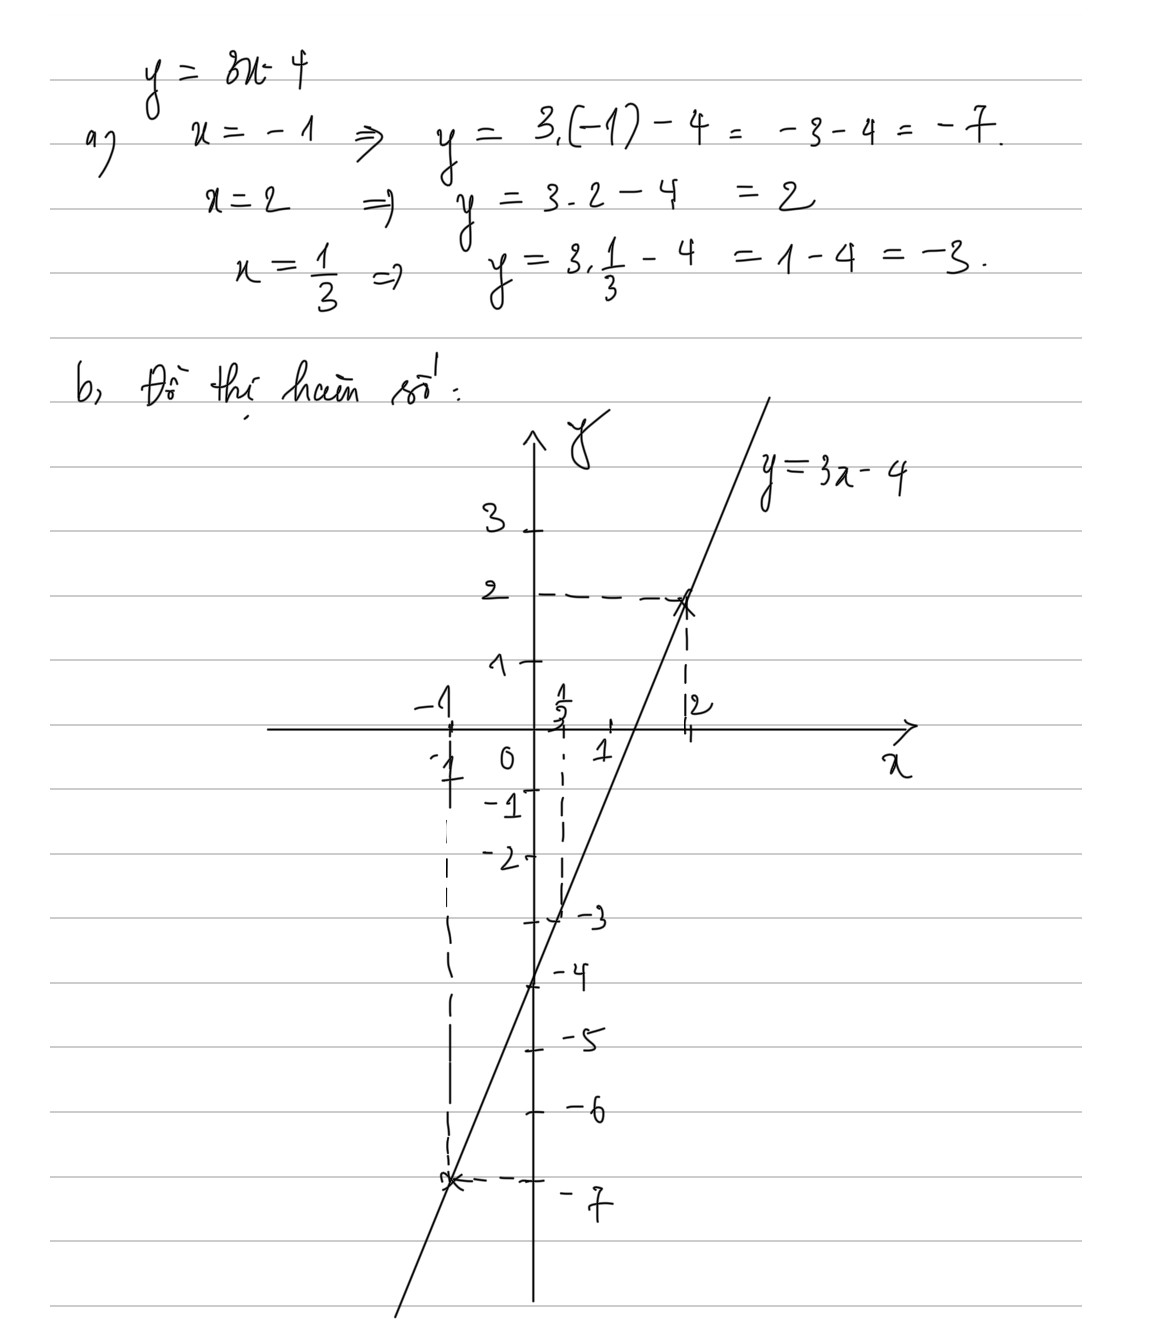 y = 3x - 4
a) x = -1 ⇒ y = 3.(-1) - 4 = -3 - 4 = -7.
x = 2 ⇒ y = 3.2 - 4 = 2
x = 1/3 ⇒ y = 3.1/3 - 4 = 1 - 4 = -3.
b, Đồ thị hàm số:
y
y = 3x - 4
3
2
1
-1 1/3 2
-1 0 1 x
-1
-2
-3
-4
-5
-6
-7